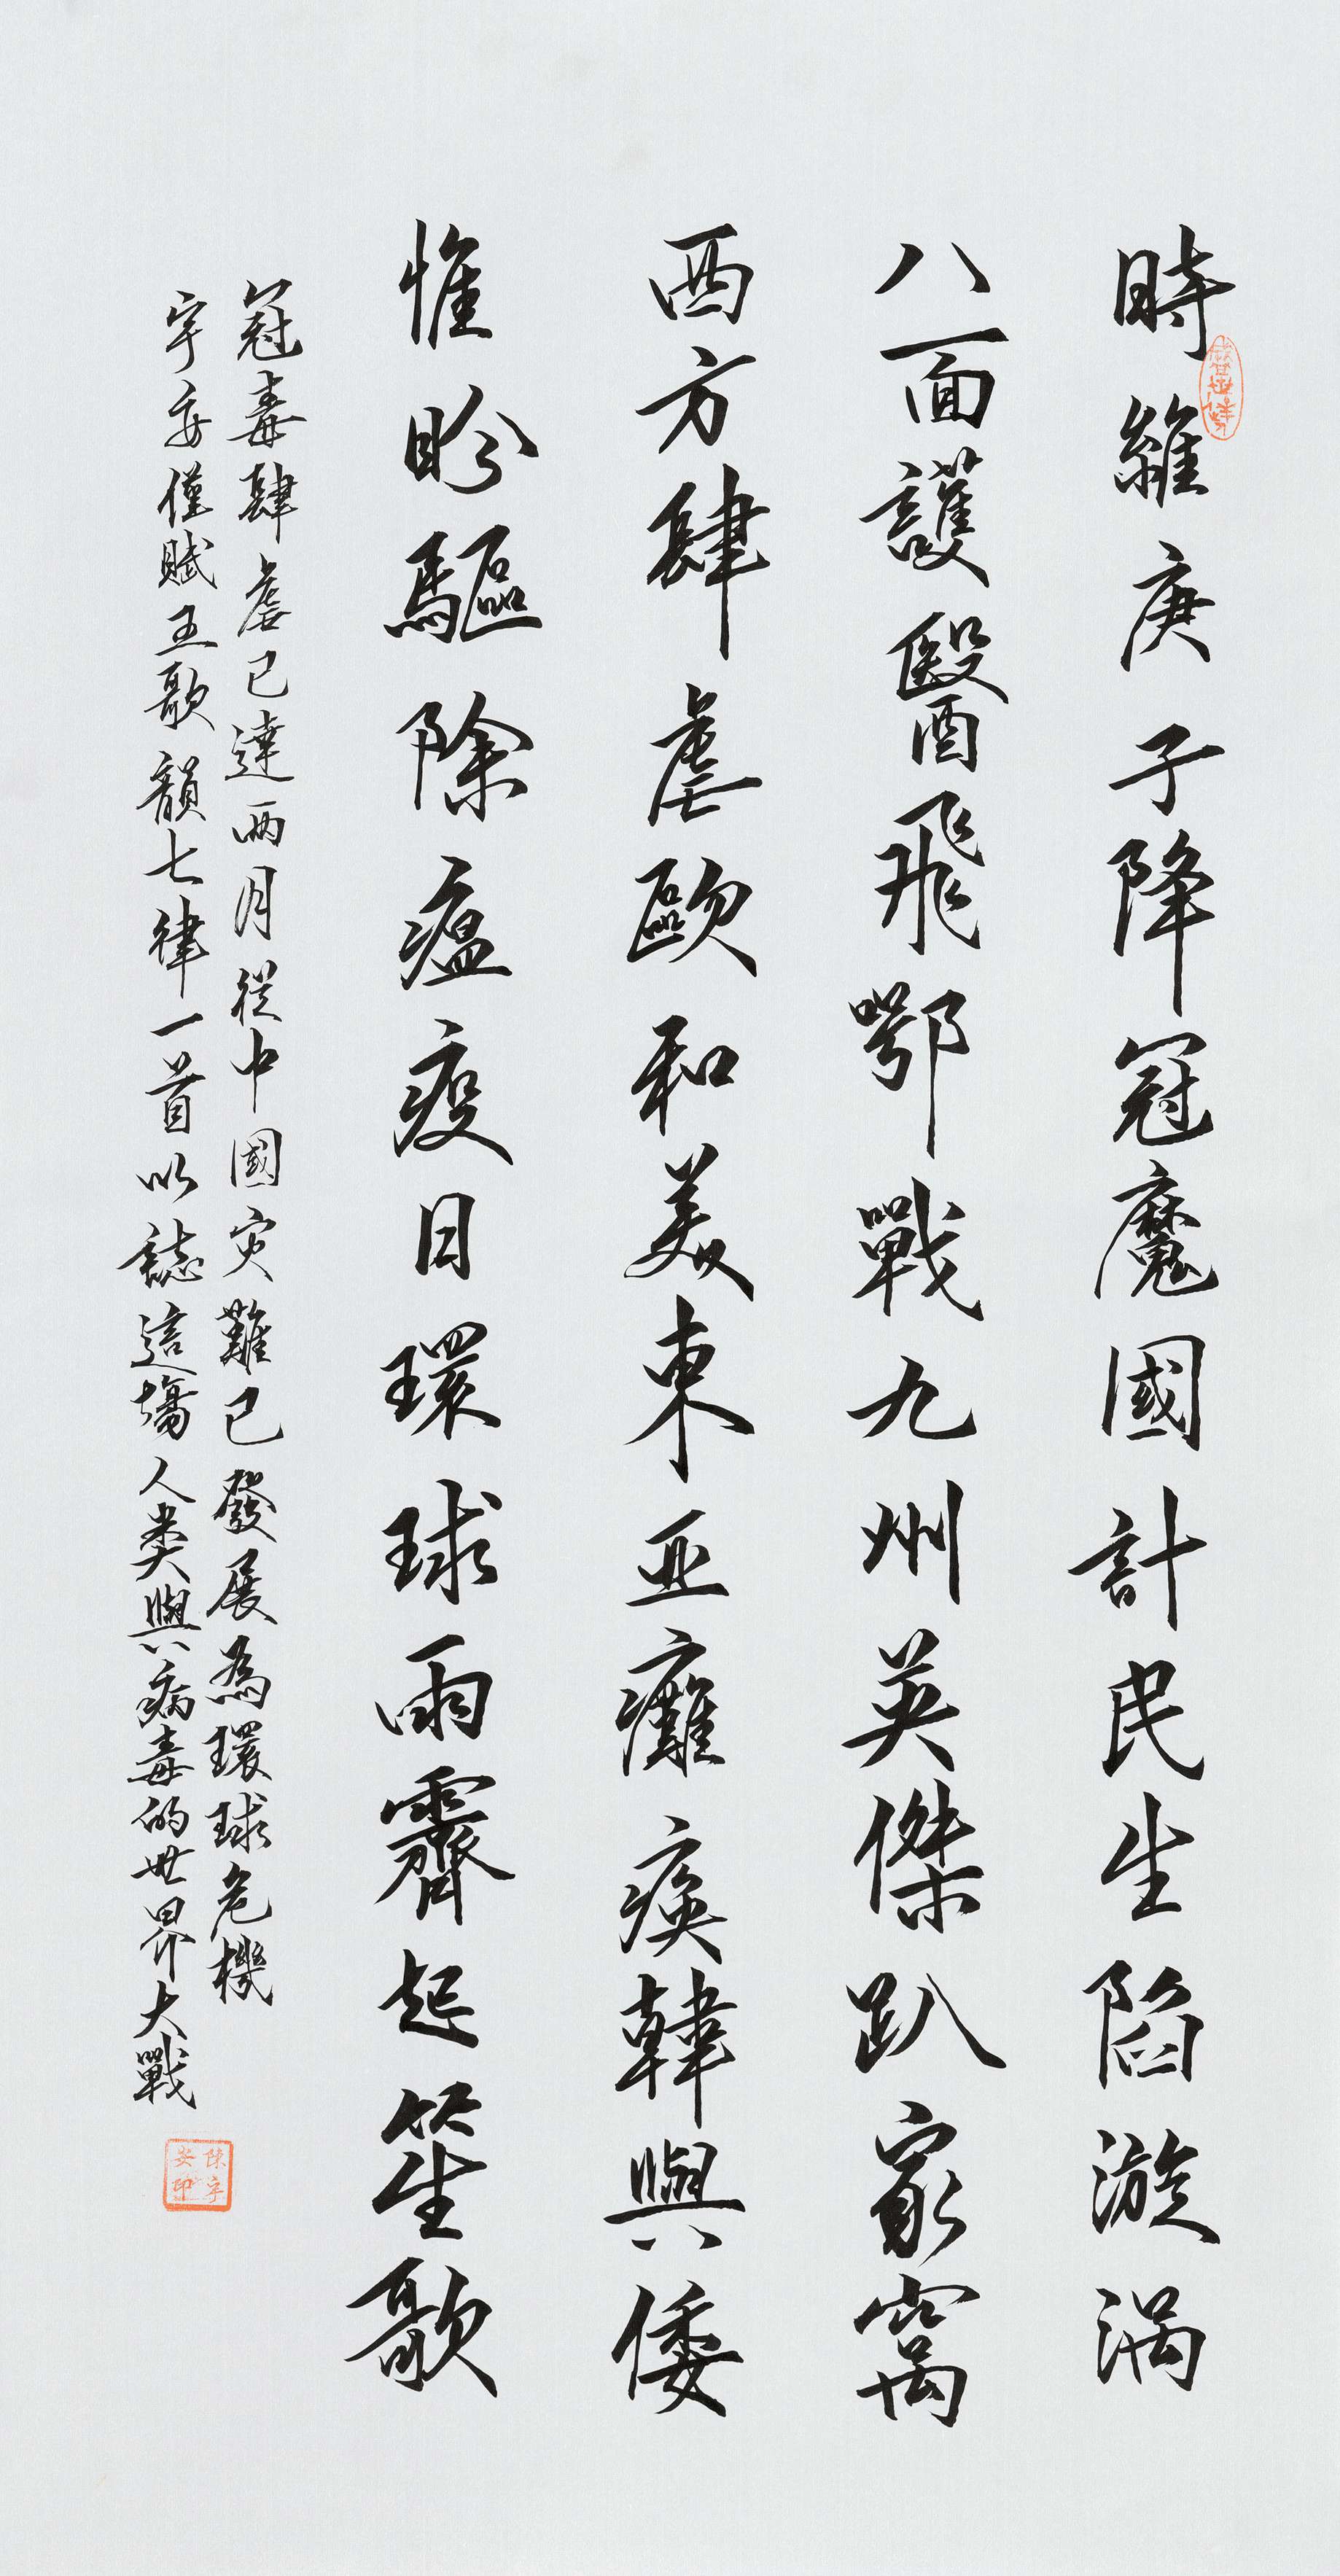 時維庚子降冠魔國計民生陷漩渦
八面護醫飛鄂戰九州英傑趴家窩
西方肆虐歐和美東亚癱瘓韓與倭
惟盼驅除瘟疫日環球雨霽起笙歌
冠毒肆虐已達两月從中國灾難已發展為環球危機
宇安僅賦五歌韻七律一首以誌這場人类與病毒的世界大戰
陳宇安印